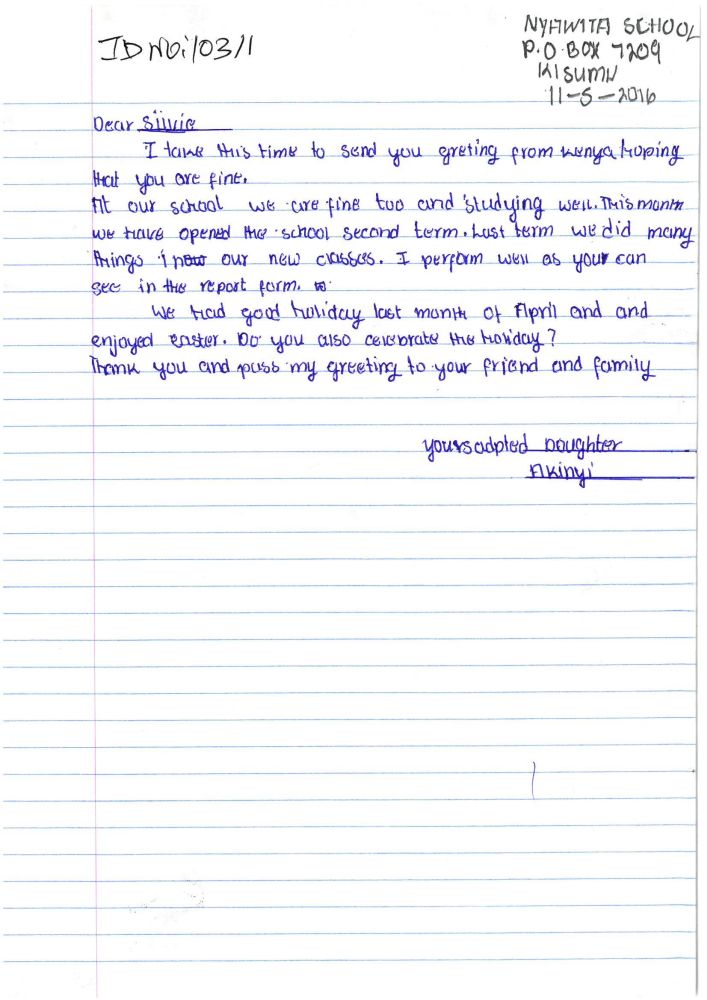 NYAWITA SCHOOL
ID NO:/03/1
P.O BOX 7209
KISUMU
11-5-2016
Dear Silvie
I take this time to send you greting from kenya hoping
that you are fine.
At our school we are fine too and studying well. This month
we have opened the school second term. Last term we did many
things in our new classes. I perform well as your can
see in the report form.
We had good holiday last month of April and and
enjoyed easter. Do you also celebrate the holiday?
Thank you and pass my greeting to your friend and family
yours adpted Doughter
Akinyi